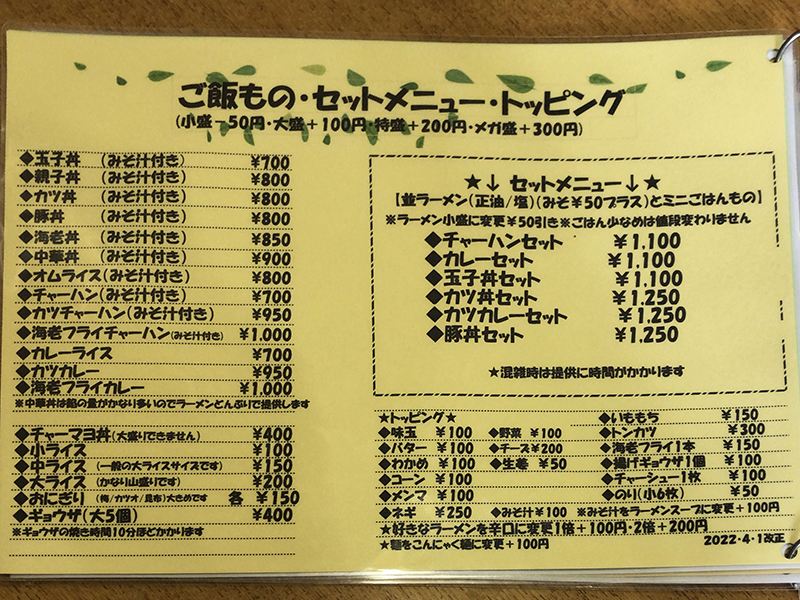 ご飯もの・セットメニュー・トッピング
(小盛−50円・大盛＋100円・特盛＋200円・メガ盛＋300円)
◆玉子丼 (みそ汁付き) ¥700
◆親子丼 (みそ汁付き) ¥800
◆カツ丼 (みそ汁付き) ¥800
◆豚丼 (みそ汁付き) ¥800
◆海老丼 (みそ汁付き) ¥850
◆中華丼 (みそ汁付き) ¥900
◆オムライス(みそ汁付き) ¥800
◆チャーハン(みそ汁付き) ¥700
◆カツチャーハン(みそ汁付き) ¥950
◆海老フライチャーハン(みそ汁付き) ¥1,000
◆カレーライス ¥700
◆カツカレー ¥950
◆海老フライカレー ¥1,000
※中華丼は餡の量がかなり多いのでラーメンどんぶりで提供します
◆チャーマヨ丼(大盛りできません) ¥400
◆小ライス ¥100
◆中ライス (一般の大ライスサイズです) ¥150
◆大ライス (かなり山盛りです) ¥200
◆おにぎり (梅/カツオ/昆布)大きめです 各 ¥150
◆ギョウザ(大5個) ¥400
※ギョウザの焼き時間10分ほどかかります
★↓ セットメニュー↓★
【並ラーメン(正油/塩)(みそ¥50プラス)とミニごはんもの】
※ラーメン小盛に変更¥50引き※ごはん少なめは値段変わりません
◆チャーハンセット ¥1,100
◆カレーセット ¥1,100
◆玉子丼セット ¥1,100
◆カツ丼セット ¥1,250
◆カツカレーセット ¥1,250
◆豚丼セット ¥1,250
★混雑時は提供に時間がかかります
★トッピング★
◆味玉 ¥100 ◆野菜 ¥100
◆バター ¥100 ◆チーズ¥200
◆わかめ ¥100 ◆生卵 ¥50
◆コーン ¥100
◆メンマ ¥100
◆ネギ ¥250 ◆みそ汁¥100 ※みそ汁をラーメンスープに変更＋100円
◆いももち ¥150
◆トンカツ ¥300
◆海老フライ1本 ¥150
◆揚げギョウザ1個 ¥100
◆チャーシュー1枚 ¥100
◆のり(小6枚) ¥50
★好きなラーメンを辛口に変更1倍＋100円・2倍＋200円
★麺をこんにゃく麺に変更＋100円
2022・4・1改正